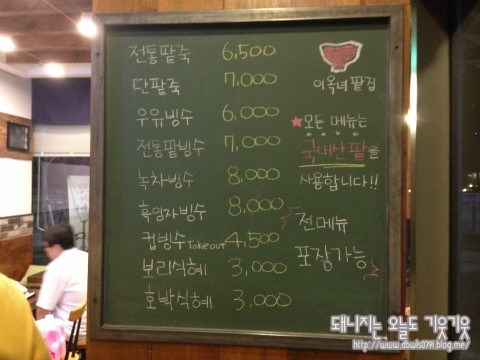 전통팥죽 6,500
단팥죽 7,000
우유빙수 6,000
전통팥빙수 7,000
녹차빙수 8,000
흑임자빙수 8,000
컵빙수 Takeout 4,500
보리식혜 3,000
호박식혜 3,000
이옥녀팥집
★모든 메뉴는
국내산 팥을
사용합니다!!
전메뉴
포장가능
돼나지는 오늘도 기웃기웃
http://www.dbwls0791.blog.me/